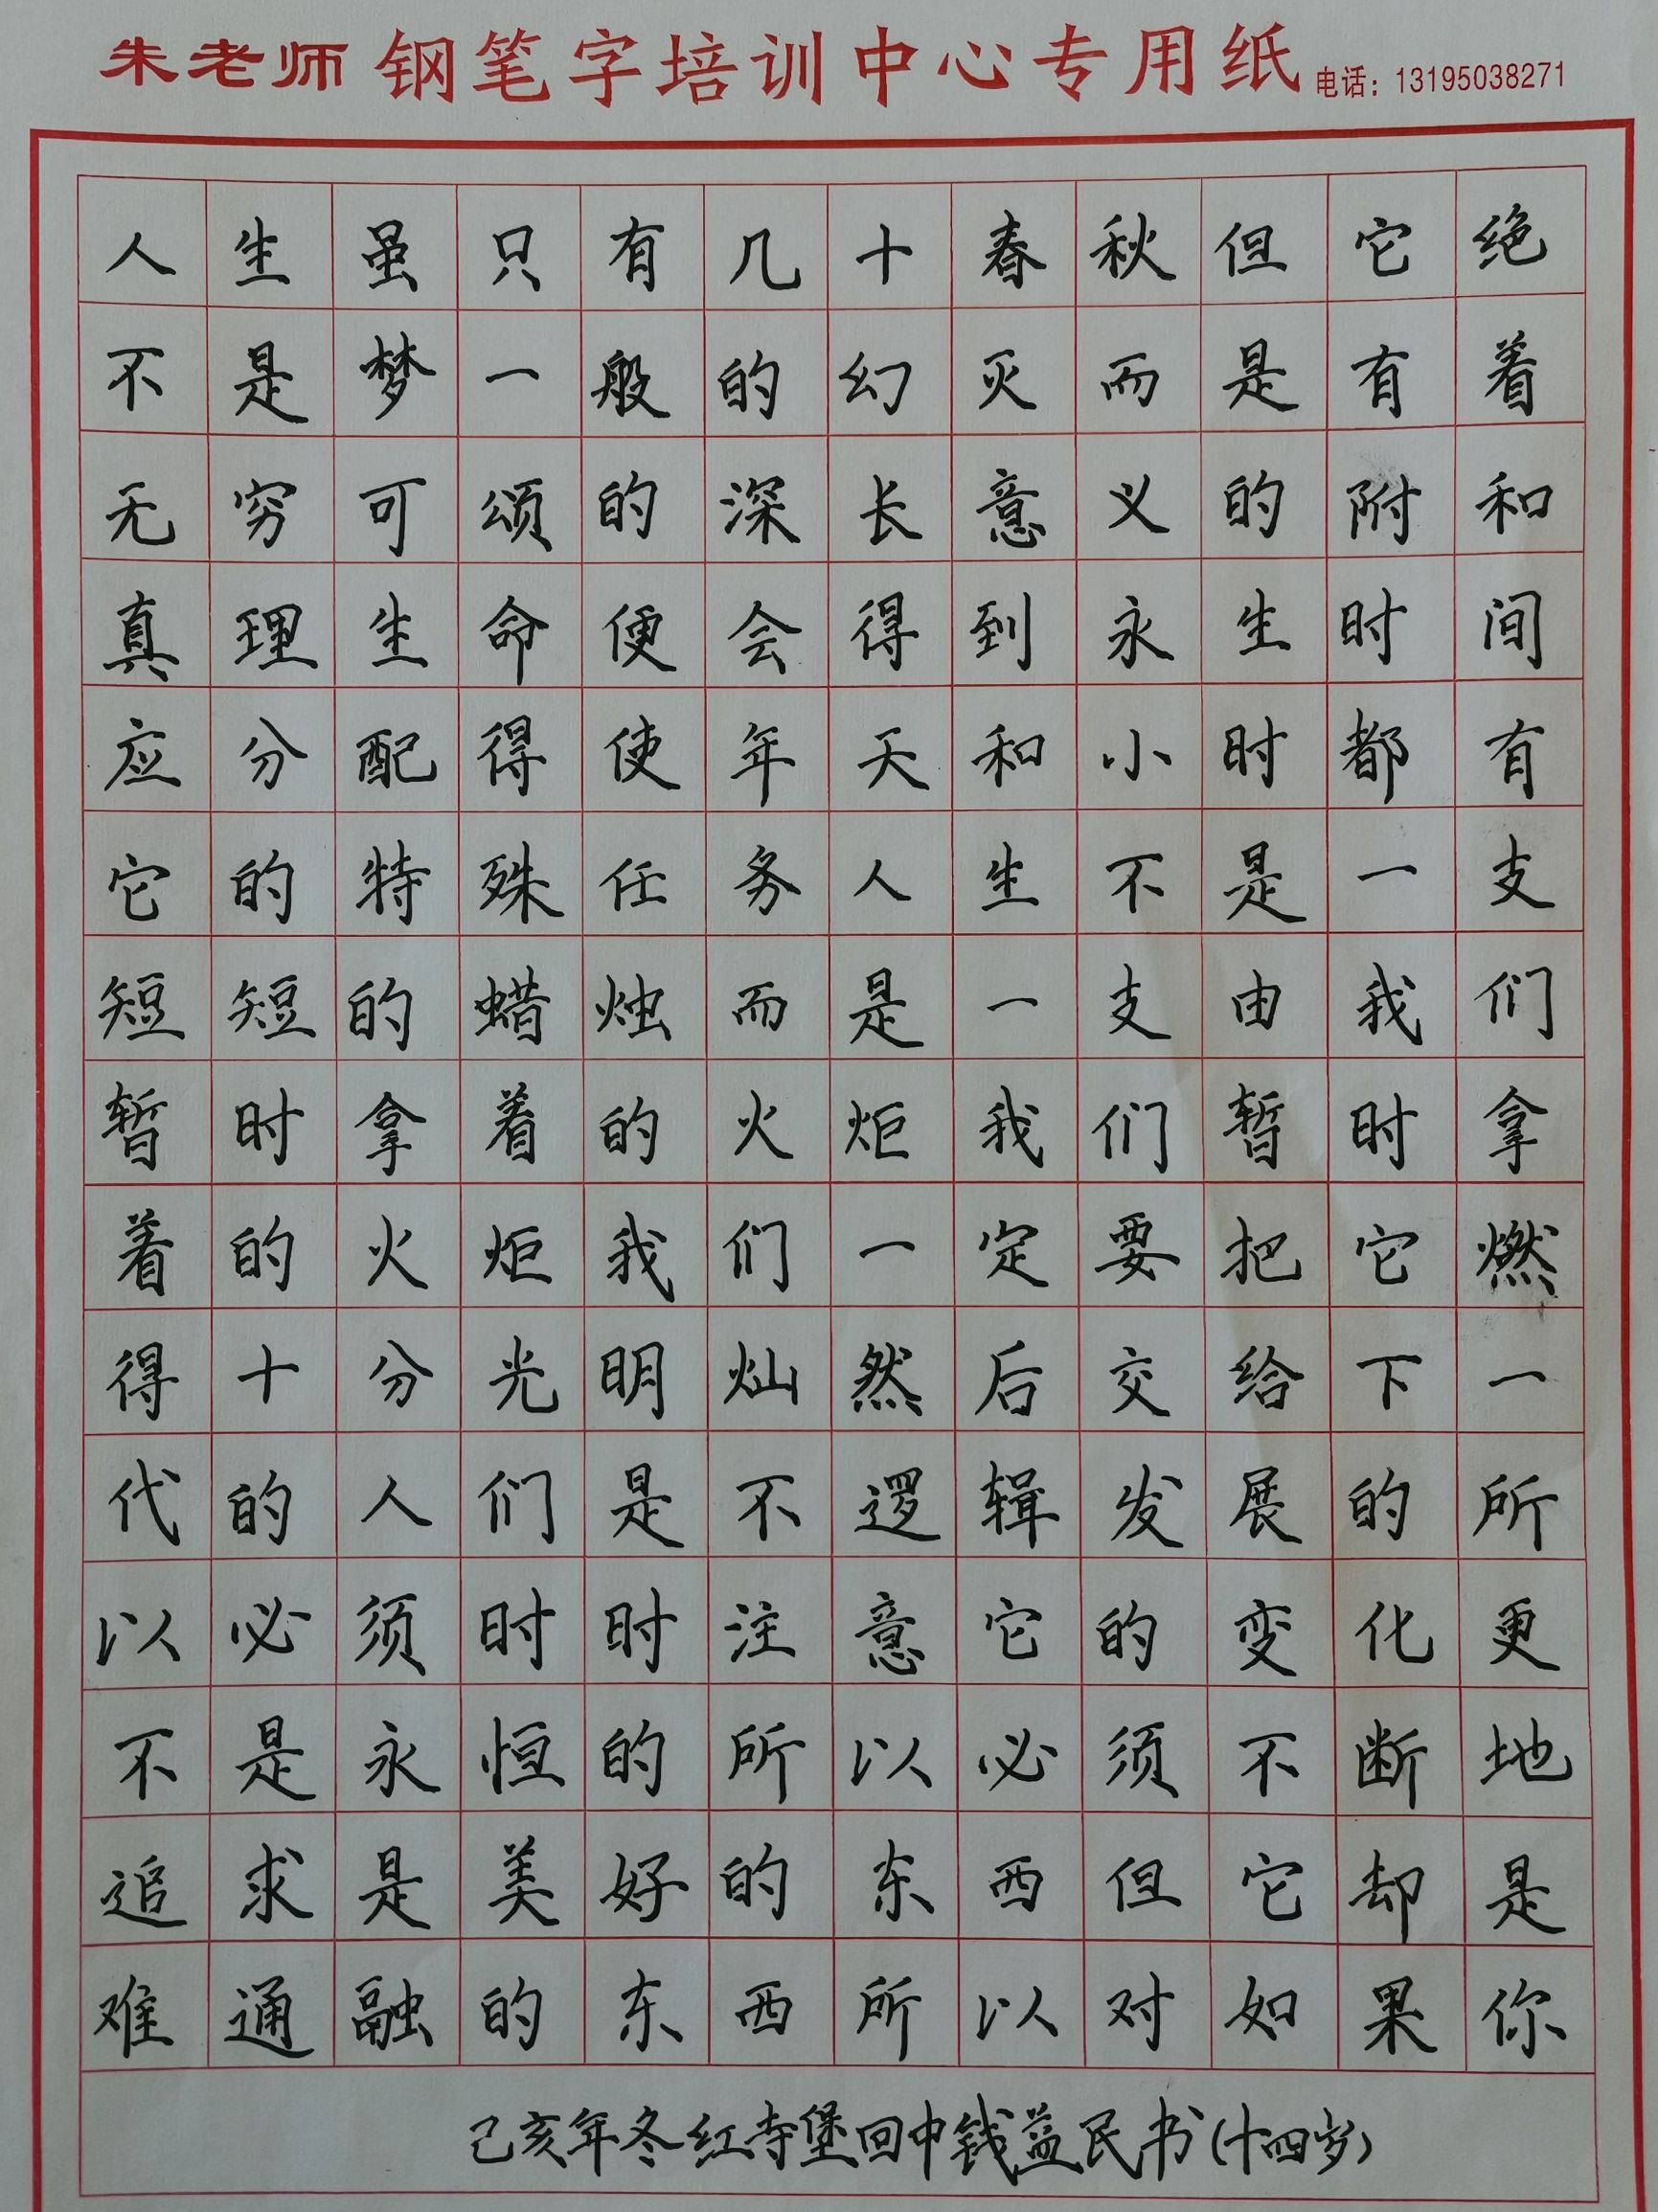 朱老师 钢笔字培训中心专用纸 电话：13195038271
人生虽只有几十春秋但它绝
不是梦一般的幻灭而是有着
无穷可颂的深长意义的附和
真理生命便会得到永生时间
应分配得使年天和小时都有
它的特殊任务人生不是一支
短短的蜡烛而是一支由我们
暂时拿着的火炬我们暂时拿
着的火炬我们一定要把它燃
得十分光明灿然后交给下一
代的人们是不逻辑发展的所
以必须时时注意它的变化更
不是永恒的所以必须不断地
追求是美好的东西但它却是
难通融的东西所以对如果你
己亥年冬红寺堡回中钱益民书(十四岁)